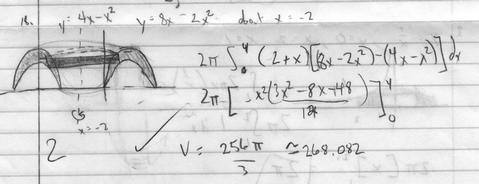 18. y = 4x-x² y = 8x-2x² about x = -2
2π ∫₀⁴ (2+x)[(8x-2x²)-(4x-x²)]dx
2π [-x²(3x²-8x-48)/12]₀⁴
x = -2
2
V = 256π/3 ≅ 268.082